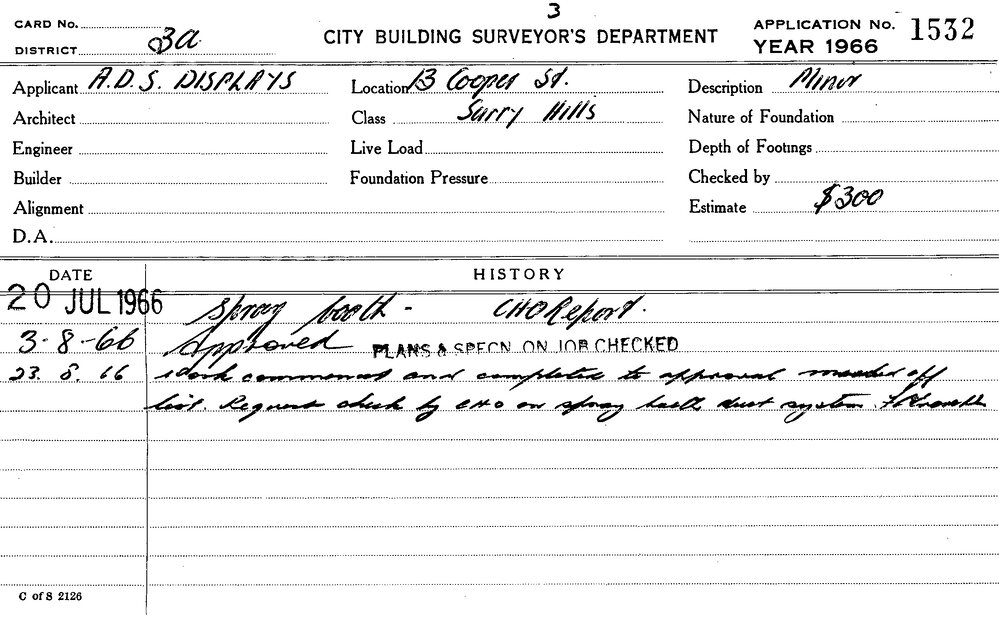 3
CARD No.
DISTRICT 3a
CITY BUILDING SURVEYOR'S DEPARTMENT
APPLICATION No. 1532
YEAR 1966
Applicant A.D.S. DISPLAYS
Location 13 Cooper St.
Description Minor
Architect
Class Surry Hills
Nature of Foundation
Engineer
Live Load
Depth of Footings
Builder
Foundation Pressure
Checked by
Alignment
Estimate $300
D.A.
DATE HISTORY
20 JUL 1966 Spray booth - CHO Report.
3-8-66 Approved PLANS & SPECN. ON JOB CHECKED
23. 8. 66 Work commenced and completed to approval marked off
list. Request check by CHO on spray booth dust system.
C of S 2126